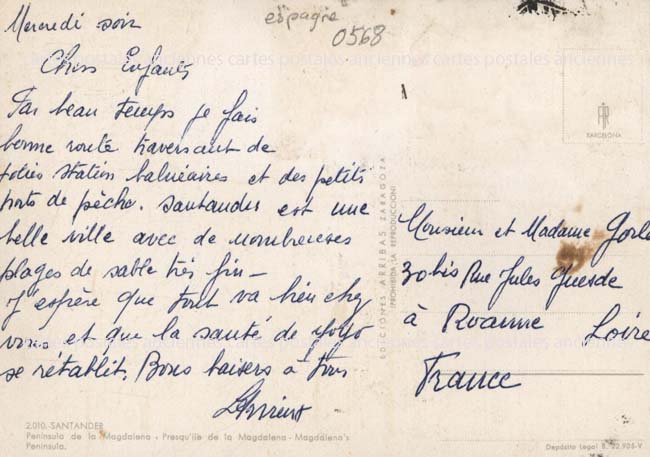 Mercredi soir
Chers Enfants
Par beau temps je fais
bonne route traversant de
jolies station balnéaires et des petits
ports de pêche. Santander est une
belle ville avec de nombreuses
plages de sable très fin —
J'espère que tout va bien chez
vous et que la santé de yoyo
se rétablit. Bons baisers à tous
2.010. SANTANDER
Península de la Magdalena - Presqu'ile de la Magdalena - Magdalena's
Peninsula.
espagne
0568
cartes postales anciennes cartes postales anciennes
EDICIONES ARRIBAS ZARAGOZA
(PROHIBIDA LA REPRODUCCION)
BARCELONA
Monsieur et Madame
30 bis Rue Jules Guesde
à Roanne Loire
France
Depósito Legal B. 22.905-V